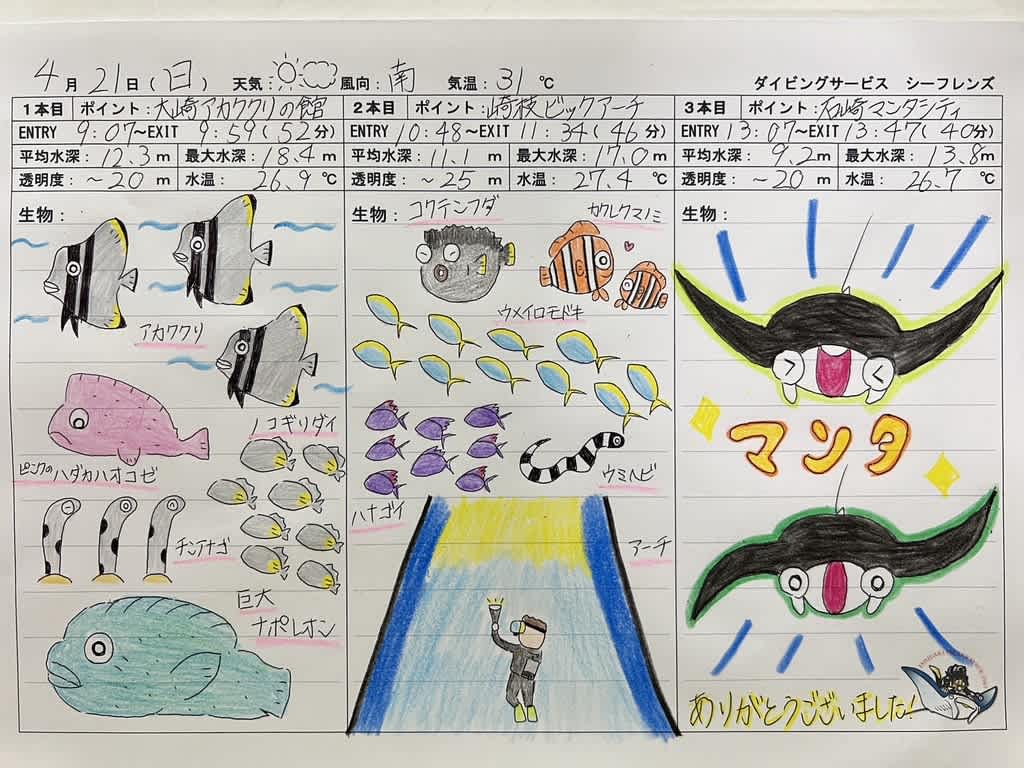 4月21日(日) 天気: 風向:南 気温:31℃ ダイビングサービス シーフレンズ
1本目 ポイント:大崎アカククリの館
ENTRY 9:07~EXIT 9:59(52分)
平均水深:12.3m 最大水深:18.4m
透明度:~20m 水温:26.9℃
生物:
アカククリ
ノコギリダイ
ピンクのハダカハオコゼ
チンアナゴ
巨大
ナポレオン
2本目 ポイント:崎枝ビックアーチ
ENTRY 10:48~EXIT 11:34(46分)
平均水深:11.1m 最大水深:17.0m
透明度:~25m 水温:27.4℃
生物:
コクテンフグ
カクレクマノミ
ウメイロモドキ
ウミヘビ
ハナゴイ
アーチ
3本目 ポイント:石崎マンタシティ
ENTRY 13:07~EXIT 13:47(40分)
平均水深:9.2m 最大水深:13.8m
透明度:~20m 水温:26.7℃
生物:
マンタ
ありがとうございました!